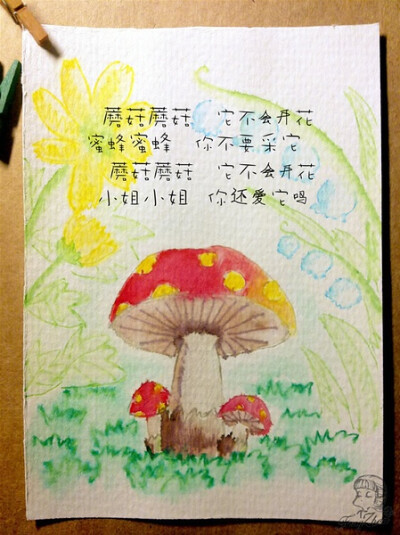 蘑菇蘑菇 它不会开花
蜜蜂蜜蜂 你不要采它
蘑菇蘑菇 它不会开花
小姐小姐 你还爱它吗